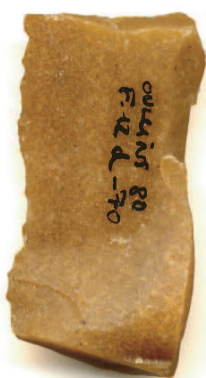 OULLINS 80
F.12 d _70